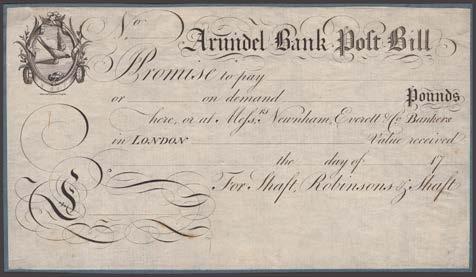 No
Arundel Bank Post Bill
I Promise to pay
or on demand Pounds
here, or at Messrs Newnham, Everett & Co Bankers
in LONDON Value received
the day of 17
For Shaft, Robinsons & Shaft
£